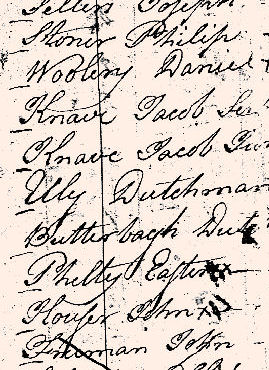 Sellers Joseph
Stoner Philip
Woolery Daniel
Knave Jacob Sen
Knave Jacob Jun
Uly Dutchman
Butterbagh Dut
Phelty Easter
Houser John
Freeman John